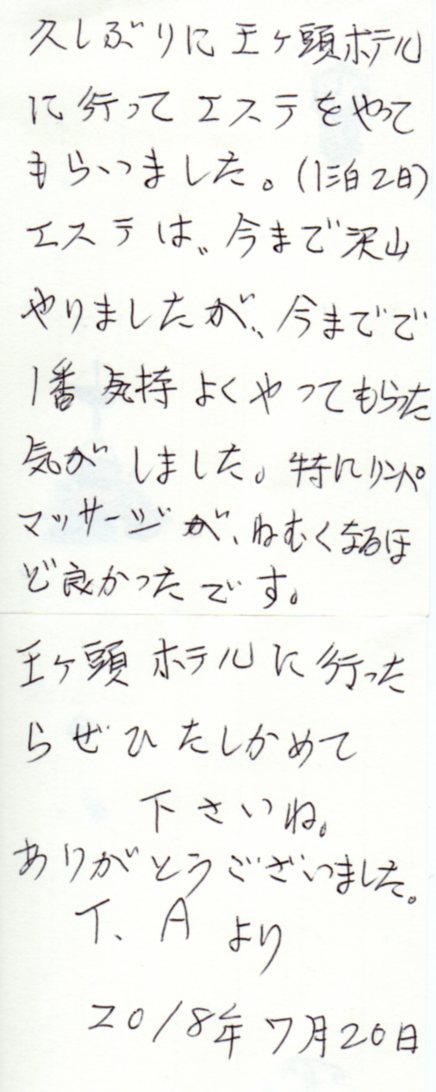 久しぶりに王ヶ頭ホテル
に行ってエステをやって
もらいました。(1泊2日)
エステは、今まで沢山
やりましたが、今までで
1番気持よくやってもらった
気がしました。特にリンパ
マッサージが、ねむくなるほ
ど良かったです。
王ヶ頭ホテルに行った
らぜひたしかめて
下さいね。
ありがとうございました。
T、Aより
2018年7月20日